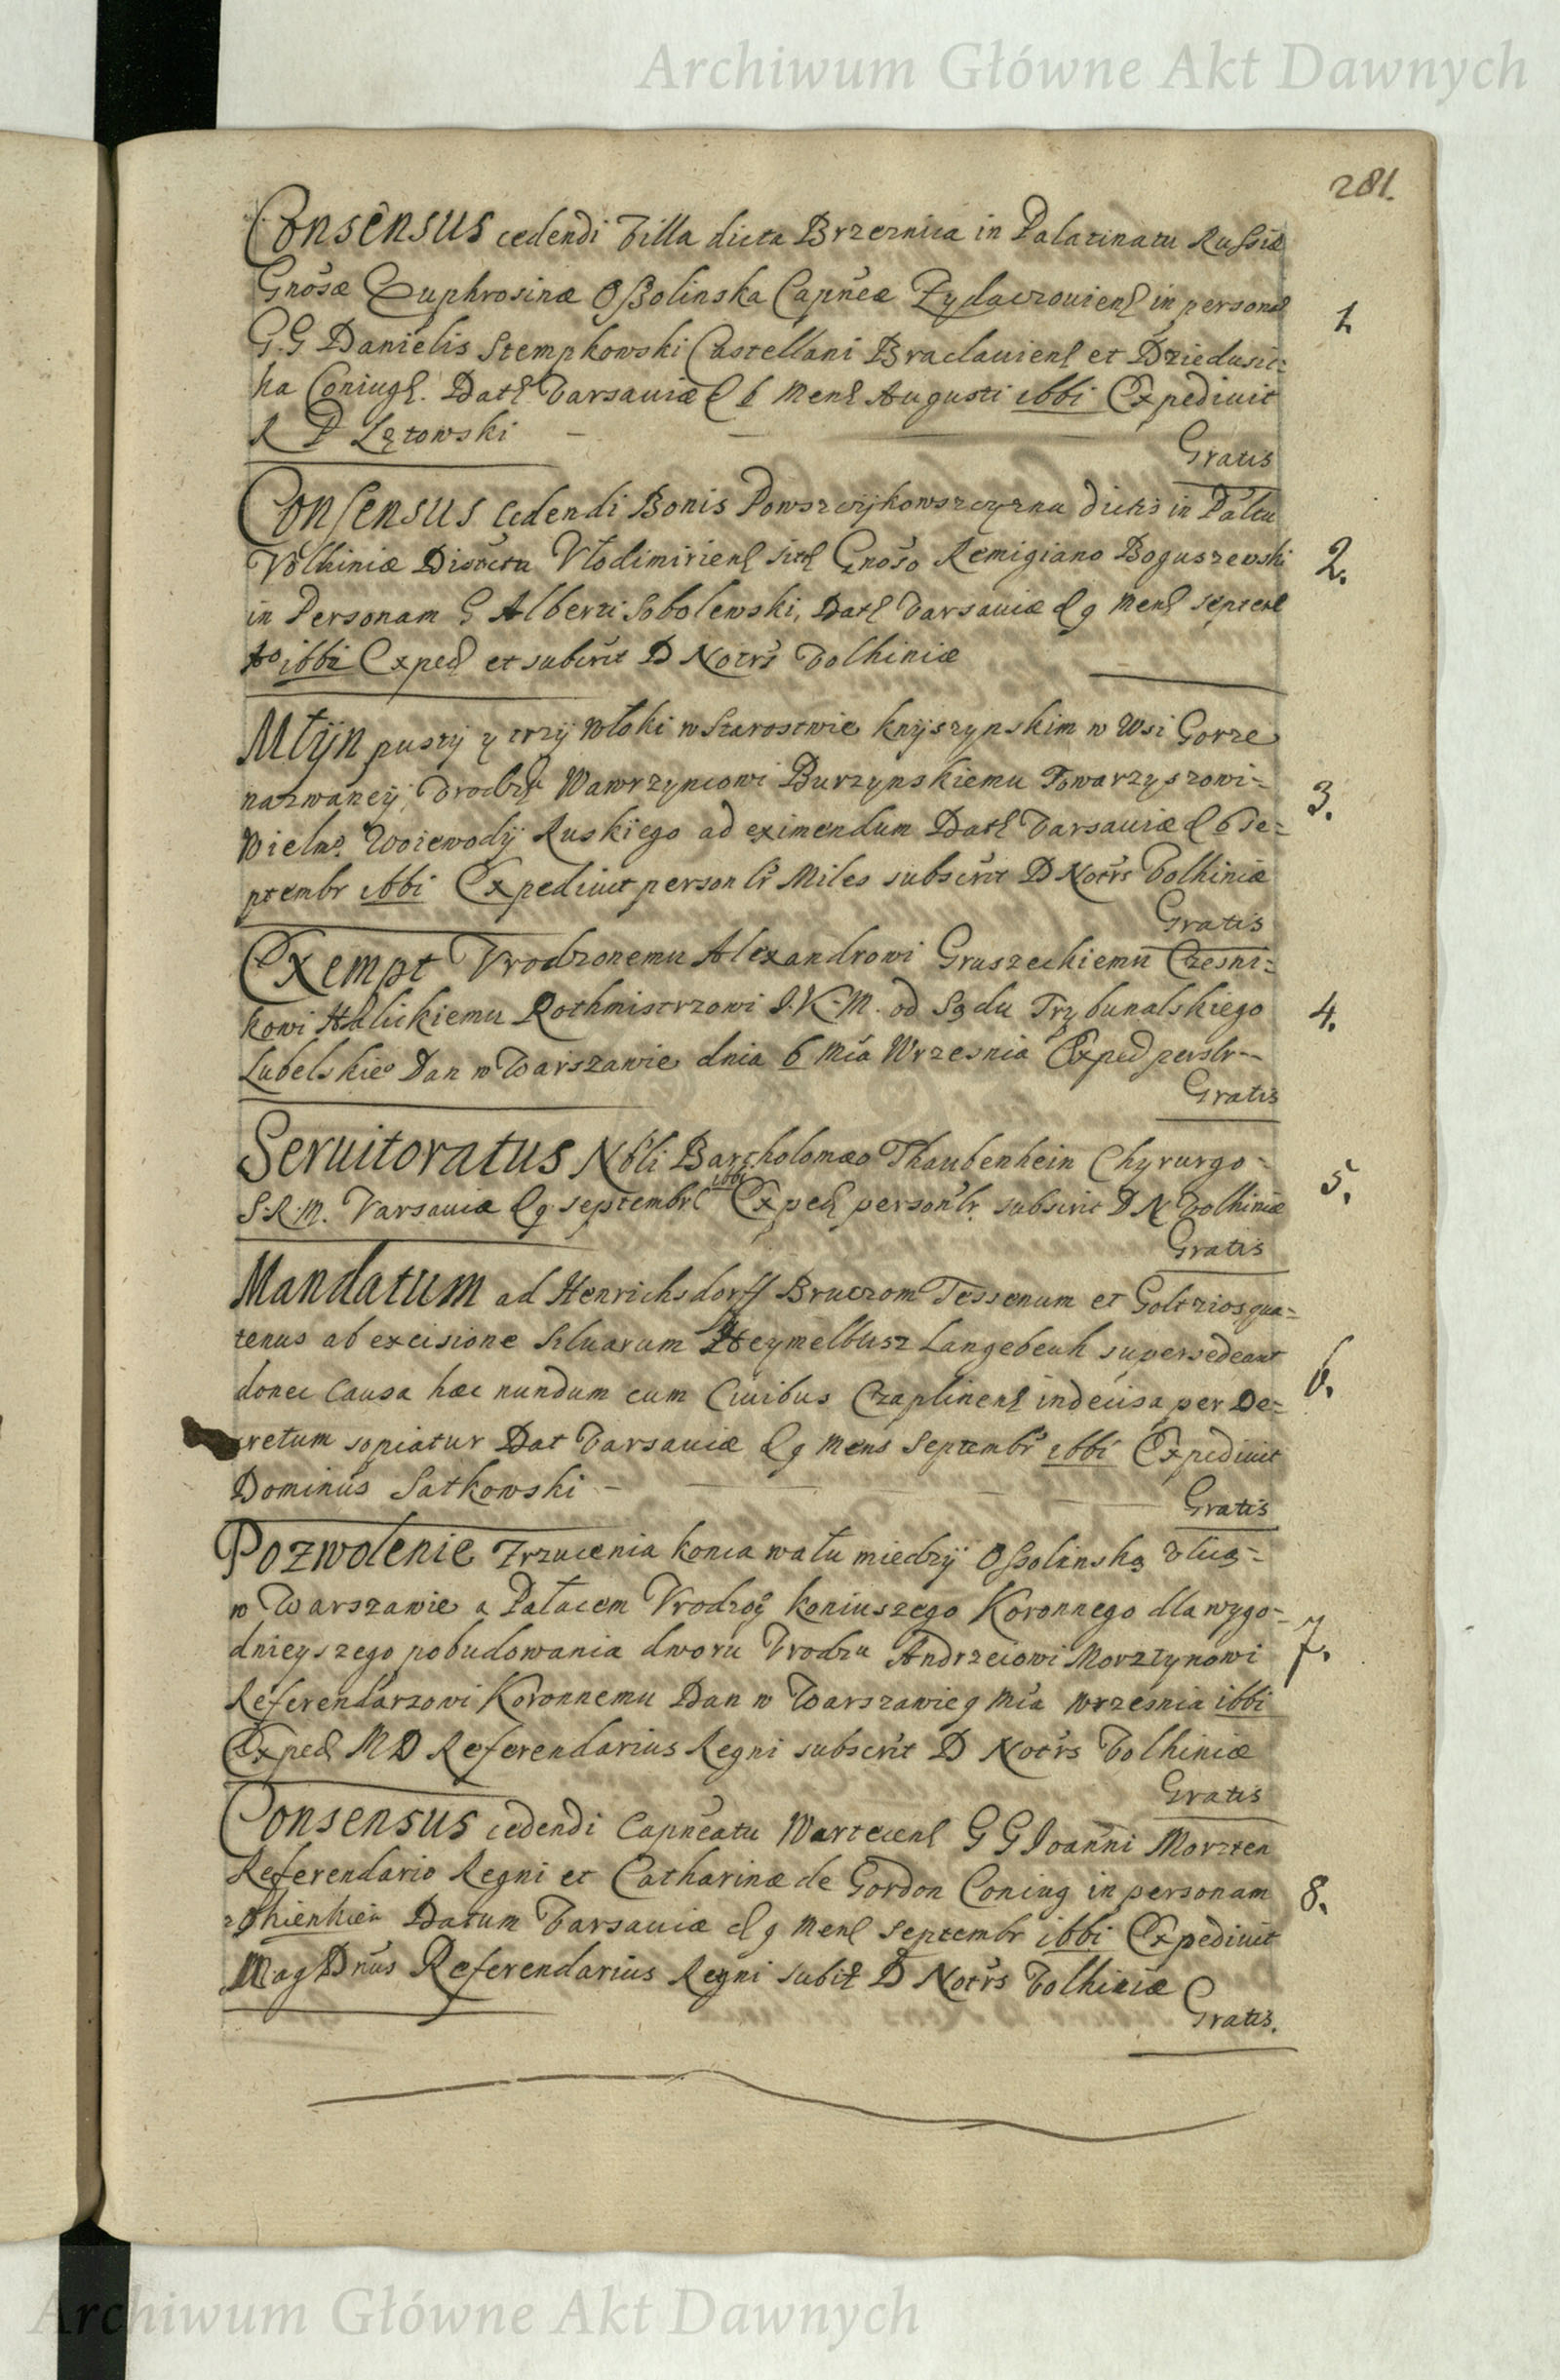 Archiwum Główne Akt Dawnych
281.
Consensus cedendi Villa dicta Brzeznica in Palatinatu Russiæ
Gnosæ Euphrosinæ Oßolinska Capneæ Zydaczouiens in personas 1.
G.G Danielis Stempkowski Castellani Braclauiens et Dziedusic=
ka Coniugs. Dats Varsauiæ d 6 Mens Augusti 1661 Expediuit
R D Lętowski
Gratis
Consensus Cedendi Bonis Powszczÿkowszczyzna dictis in Paltu
Volhiniæ Districtu Vlodimiriens Gnoso Remigiano Boguszewski 2.
in Personam G Alberti Sobolewski, Dats Varsauiæ d 9 Mens Septems
Ao 1661 Exped et subscrit D Notrs Volhiniæ
Młÿn pustÿ y trzÿ Włoki w Starostwie knÿszynskim w Wsi Gorze
nazwaneÿ, Vrodz Wawrzyncowi Burzynskiemu Towarzyszowi= 3.
Wielmo. Woiewodÿ Ruskiego ad eximendum Dats Varsauiæ d 6 Se=
ptembr 1661 Expediuit personlr Miles subscrit D Notrs Volhiniæ
Gratis
Exempt Vrodzonemu Alexandrowi Gruszeckiemu Czesni=
kowi Halickiemu Rothmistrzowi J.K.M. od Sądu Trybunalskiego 4.
Lubelskieo Dan w Warszawie dnia 6 Mca Wrzesnia Exped perslr
Gratis
Seruitoratus Nbli Bartholomæo Thaubenhein Chyrurgo=
S.R.M. Varsauiæ d 9 Septembr 1661 Exped personlr. subscrit D N Volhiniæ 5.
Gratis
Mandatum ad Henrichsdorff Bruczom Tessenum et Goltziosqua=
tenus ab excisione Siluarum Heymelbusz Langebeuk supersedeant
donec Causa hæc nundum cum Ciuibus Czaplinens indecisa per De= 6.
cretum sopiatur Dat Varsauiæ d 9 Mens Septembr 1661 Expediuit
Dominus Satkowski
Gratis
Pozwolenie Zrzucenia konca wału miedzÿ Oßolinską Vlicą=
w Warszawie a Pałacem Vrodzoo koniuszego Koronnego dla wygo=
dnieyszego pobudowania dworu Vrodzu Andrzeiowi Morztynowi 7.
Referendarzowi Koronnemu Dan w Warszawie 9 Mca Wrzesnia 1661
Exped M D Referendarius Regni subscrit D Notrs Volhiniæ
Gratis
Consensus cedendi Capneatu Warteciens G G Joanni Morzten
Referendario Regni et Catharinæ de Gordon Coniug in personam 8.
Datum Varsauiæ d 9 Mens Septembr 1661 Expediuit
Mag Dnus Referendarius Regni subst D Notrs Volhiniæ
Gratis.
Archiwum Główne Akt Dawnych